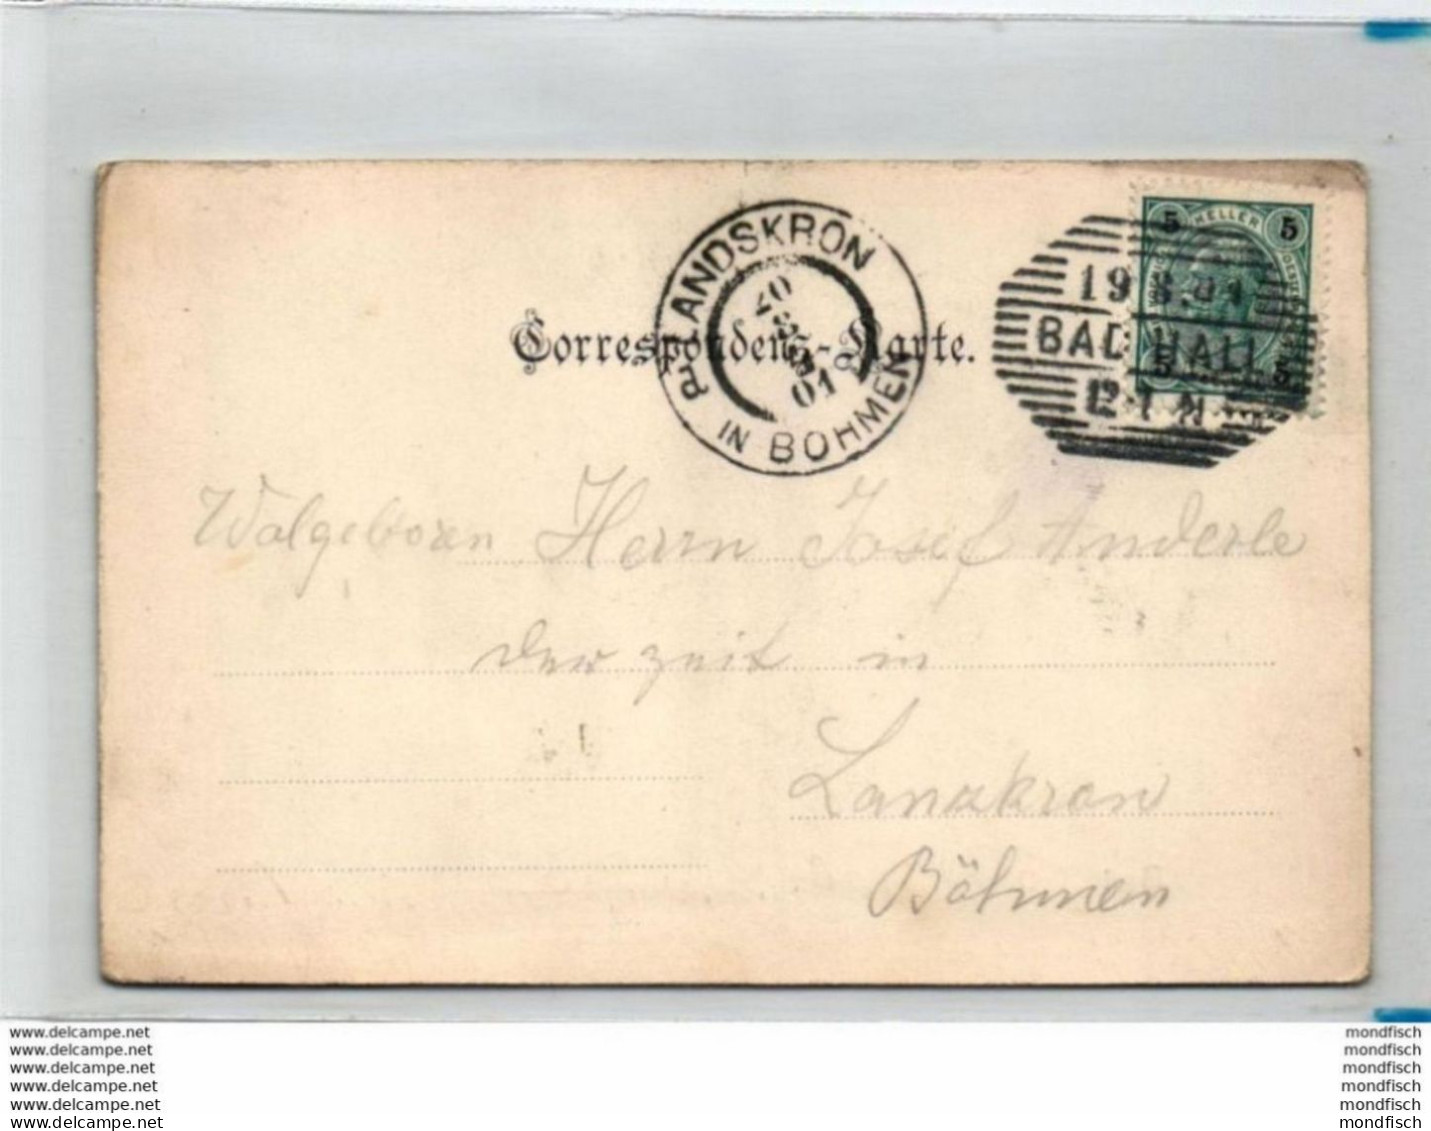 5 HELLER 5
LANDSKRON
IN BÖHMEN
01
BAD HALL
5 5
Correspondenz-Karte.
Wolgeboren Herrn Josef Anderle
der zeit in
Lanzkron
Böhmen
www.delcampe.net
www.delcampe.net
www.delcampe.net
www.delcampe.net
www.delcampe.net
www.delcampe.net
mondfisch
mondfisch
mondfisch
mondfisch
mondfisch
mondfisch